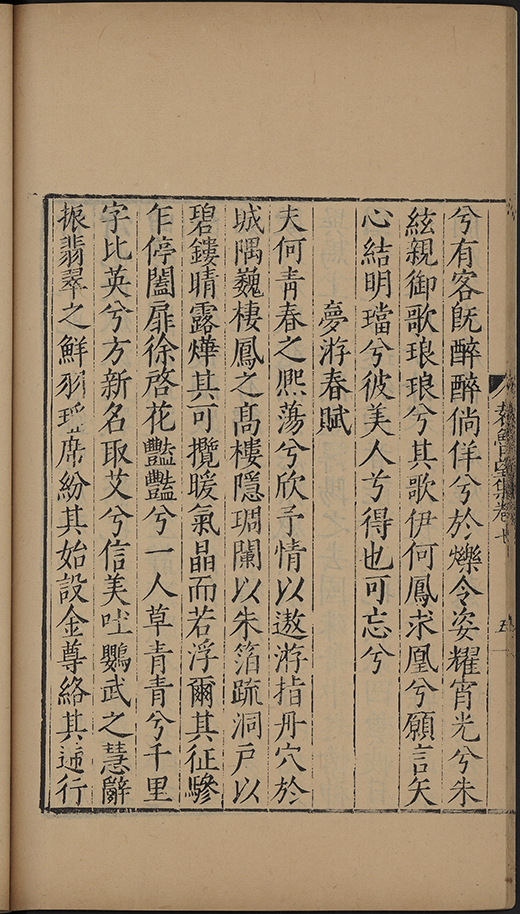 兮有客旣醉醉倘佯兮於爍令姿耀宵光兮朱
絃親御歌琅琅兮其歌伊何鳳求凰兮願言矢
心結明璫兮彼美人兮得也可忘兮
夢游春賦
夫何青春之熙蕩兮欣予情以遨游指丹穴於
城隅巍棲鳳之高樓隱琱闌以朱箔疏洞戶以
碧鏤晴露燁其可攬暖氣晶而若浮爾其征驂
乍停闔扉徐啓花豔豔兮一人草青青兮千里
字比英兮方新名取艾兮信美吐鸚武之慧辭
振翡翠之鮮羽瑤席紛其始設金尊絡其遞行
集卷
五